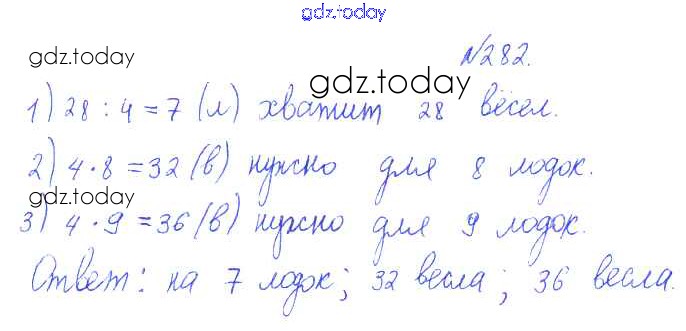 gdz.today
gdz.today
№282.
gdz.today
1) 28 : 4 = 7 (л) хватит 28 вёсел.
2) 4 · 8 = 32 (в) нужно для 8 лодок.
gdz.today
3) 4 · 9 = 36 (в) нужно для 9 лодок.
Ответ: на 7 лодок; 32 весла; 36 весла.